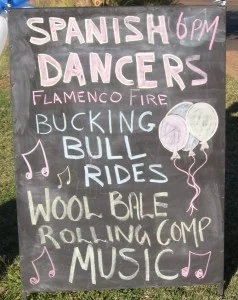 SPANISH 6PM
DANCERS
FLAMENCO FIRE
BUCKING
BULL
RIDES
WOOL BALE
ROLLING COMP
MUSIC